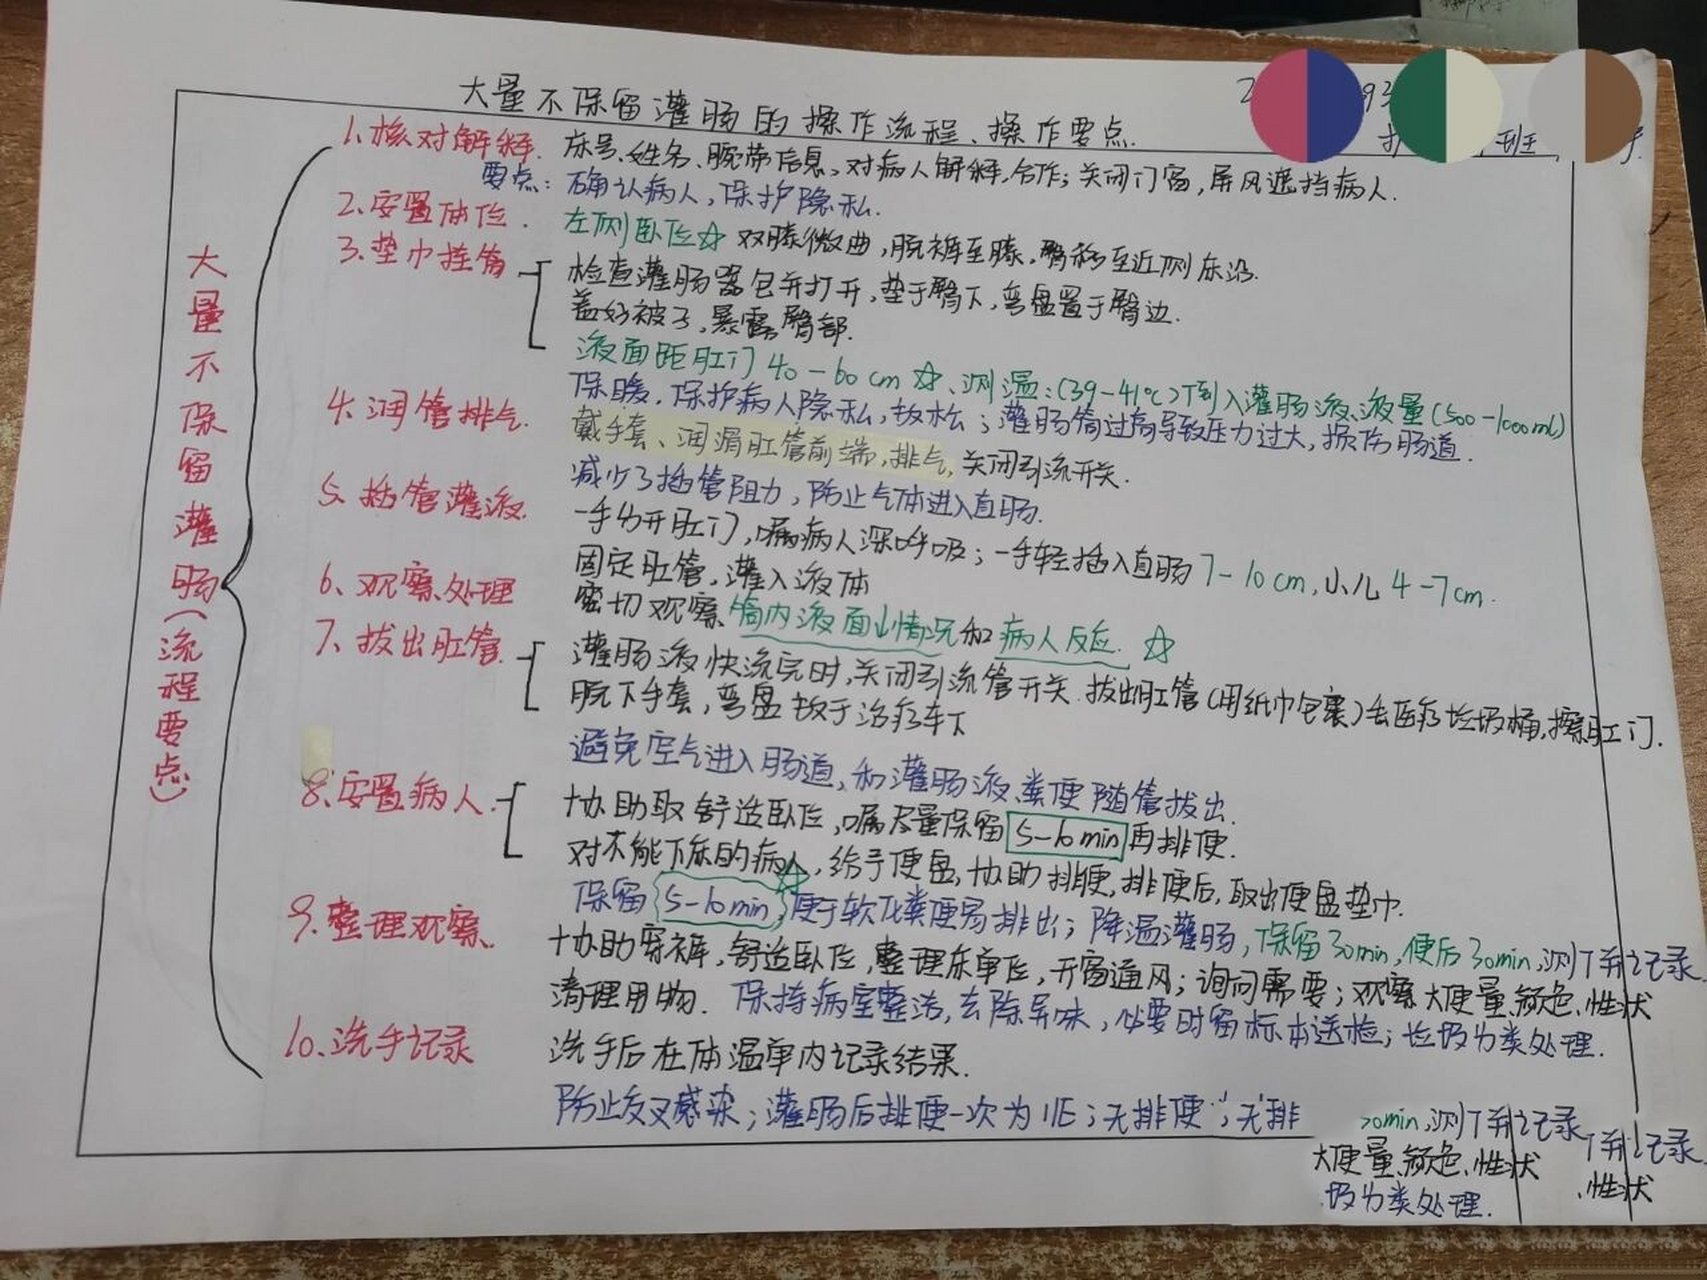 大量不保留灌肠的操作流程、操作要点.
班
大量不保留灌肠(流程要点)
1.核对解释. 床号、姓名、腕带信息,对病人解释,合作;关闭门窗,屏风遮挡病人.
要点:确认病人,保护隐私.
2.安置体位. 左侧卧位☆ 双膝微曲,脱裤至膝,臀移至近侧床沿.
3.垫巾挂筒 检查灌肠器包并打开,垫于臀下,弯盘置于臀边.
盖好被子,暴露臀部.
液面距肛门40-60cm☆、测温:(39-41℃)倒入灌肠液、液量(500-1000ml)
保暖.保护病人隐私,放松;灌肠筒过高导致压力过大,损伤肠道.
4.润管排气. 戴手套、润滑肛管前端,排气,关闭引流开关.
减少了插管阻力,防止气体进入直肠.
5.插管灌液. 一手分开肛门,嘱病人深呼吸;一手轻插入直肠7-10cm,小儿4-7cm.
固定肛管,灌入液体
6、观察、处理 密切观察、筒内液面、情况和病人反应.☆
7、拔出肛管. 灌肠液快流完时,关闭引流管开关.拔出肛管(用纸巾包裹)丢医疗垃圾桶,擦肛门.
脱下手套,弯盘放于治疗车下
避免空气进入肠道,和灌肠液、粪便随管拔出.
8.安置病人. 协助取舒适卧位,嘱尽量保留5-10min再排便.
对不能下床的病人☆,给予便盘,协助排便,排便后,取出便盘、垫巾.
保留5-10min,便于软化粪便易排出;降温灌肠,保留30min,便后30min,测T并记录
9.整理观察、 协助穿裤,舒适卧位,整理床单位,开窗通风;询问需要;观察大便量、颜色、性状
清理用物. 保持病室整洁,去除异味,必要时留标本送检;垃圾分类处理.
10、洗手记录 洗手后在体温单内记录结果.
防止交叉感染;灌肠后排便一次为1/E;无排便;无排
min,测T并记录
T并记录
大便量、颜色、性状
、性状
圾分类处理.